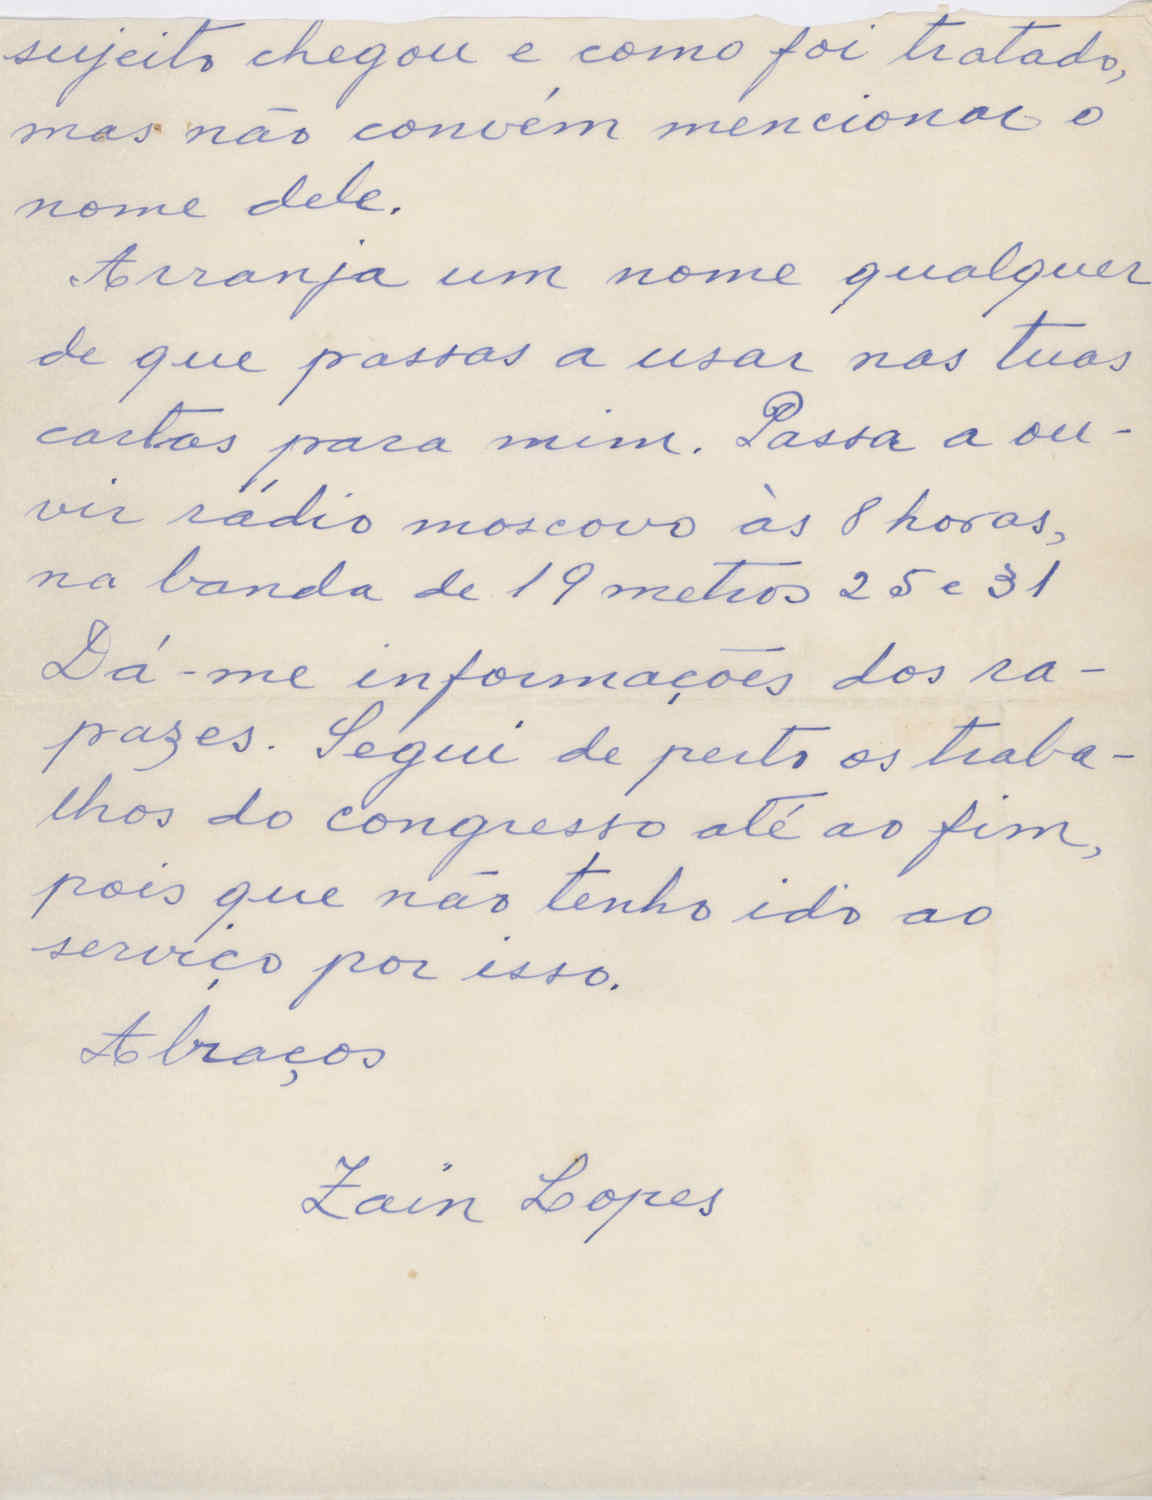 sujeito chegou e como foi tratado,
mas não convém mencionar o
nome dele.
Arranja um nome qualquer
de que passas a usar nas tuas
cartas para mim. Passa a ou-
vir rádio moscovo às 8 horas,
na banda de 19 metros 25 e 31
Dá-me informações dos ra-
pazes. Segui de perto os traba-
lhos do congresso até ao fim,
pois que não tenho ido ao
serviço por isso.
Abraços
Zain Lopes